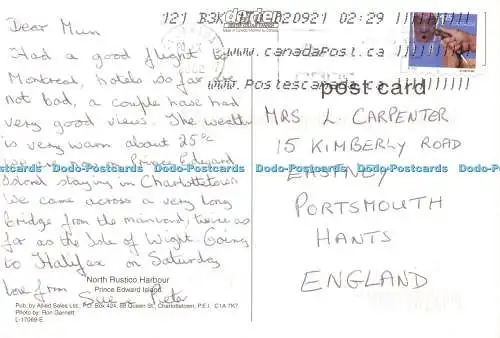 121 B3K 020921 02:29
www.canadaPost.ca
www.Postescanada.ca
post card
Dear Mum
Had a good flight to
Montreal, hotels so far
not bad, a couple have had
very good views. The weather
is very warm about 25°C
We are now on Prince Edward
Island staying in Charlottetown.
We came across a very long
bridge from the mainland, twice as
far as the Isle of Wight. Going
to Halifax on Saturday
love from
Sue & Peter
MRS L. CARPENTER
15 KIMBERLY ROAD
EASTNEY
PORTSMOUTH
HANTS
ENGLAND
Dodo-Postcards Dodo-Postcards Dodo-Postcards Dodo-Postcards Dodo-Postcards
North Rustico Harbour
Prince Edward Island
Pub. by Allied Sales Ltd., P.O. Box 424, 68 Queen St., Charlottetown, P.E.I. C1A 7K7
Photo by: Ron Garnett
L-17069-E